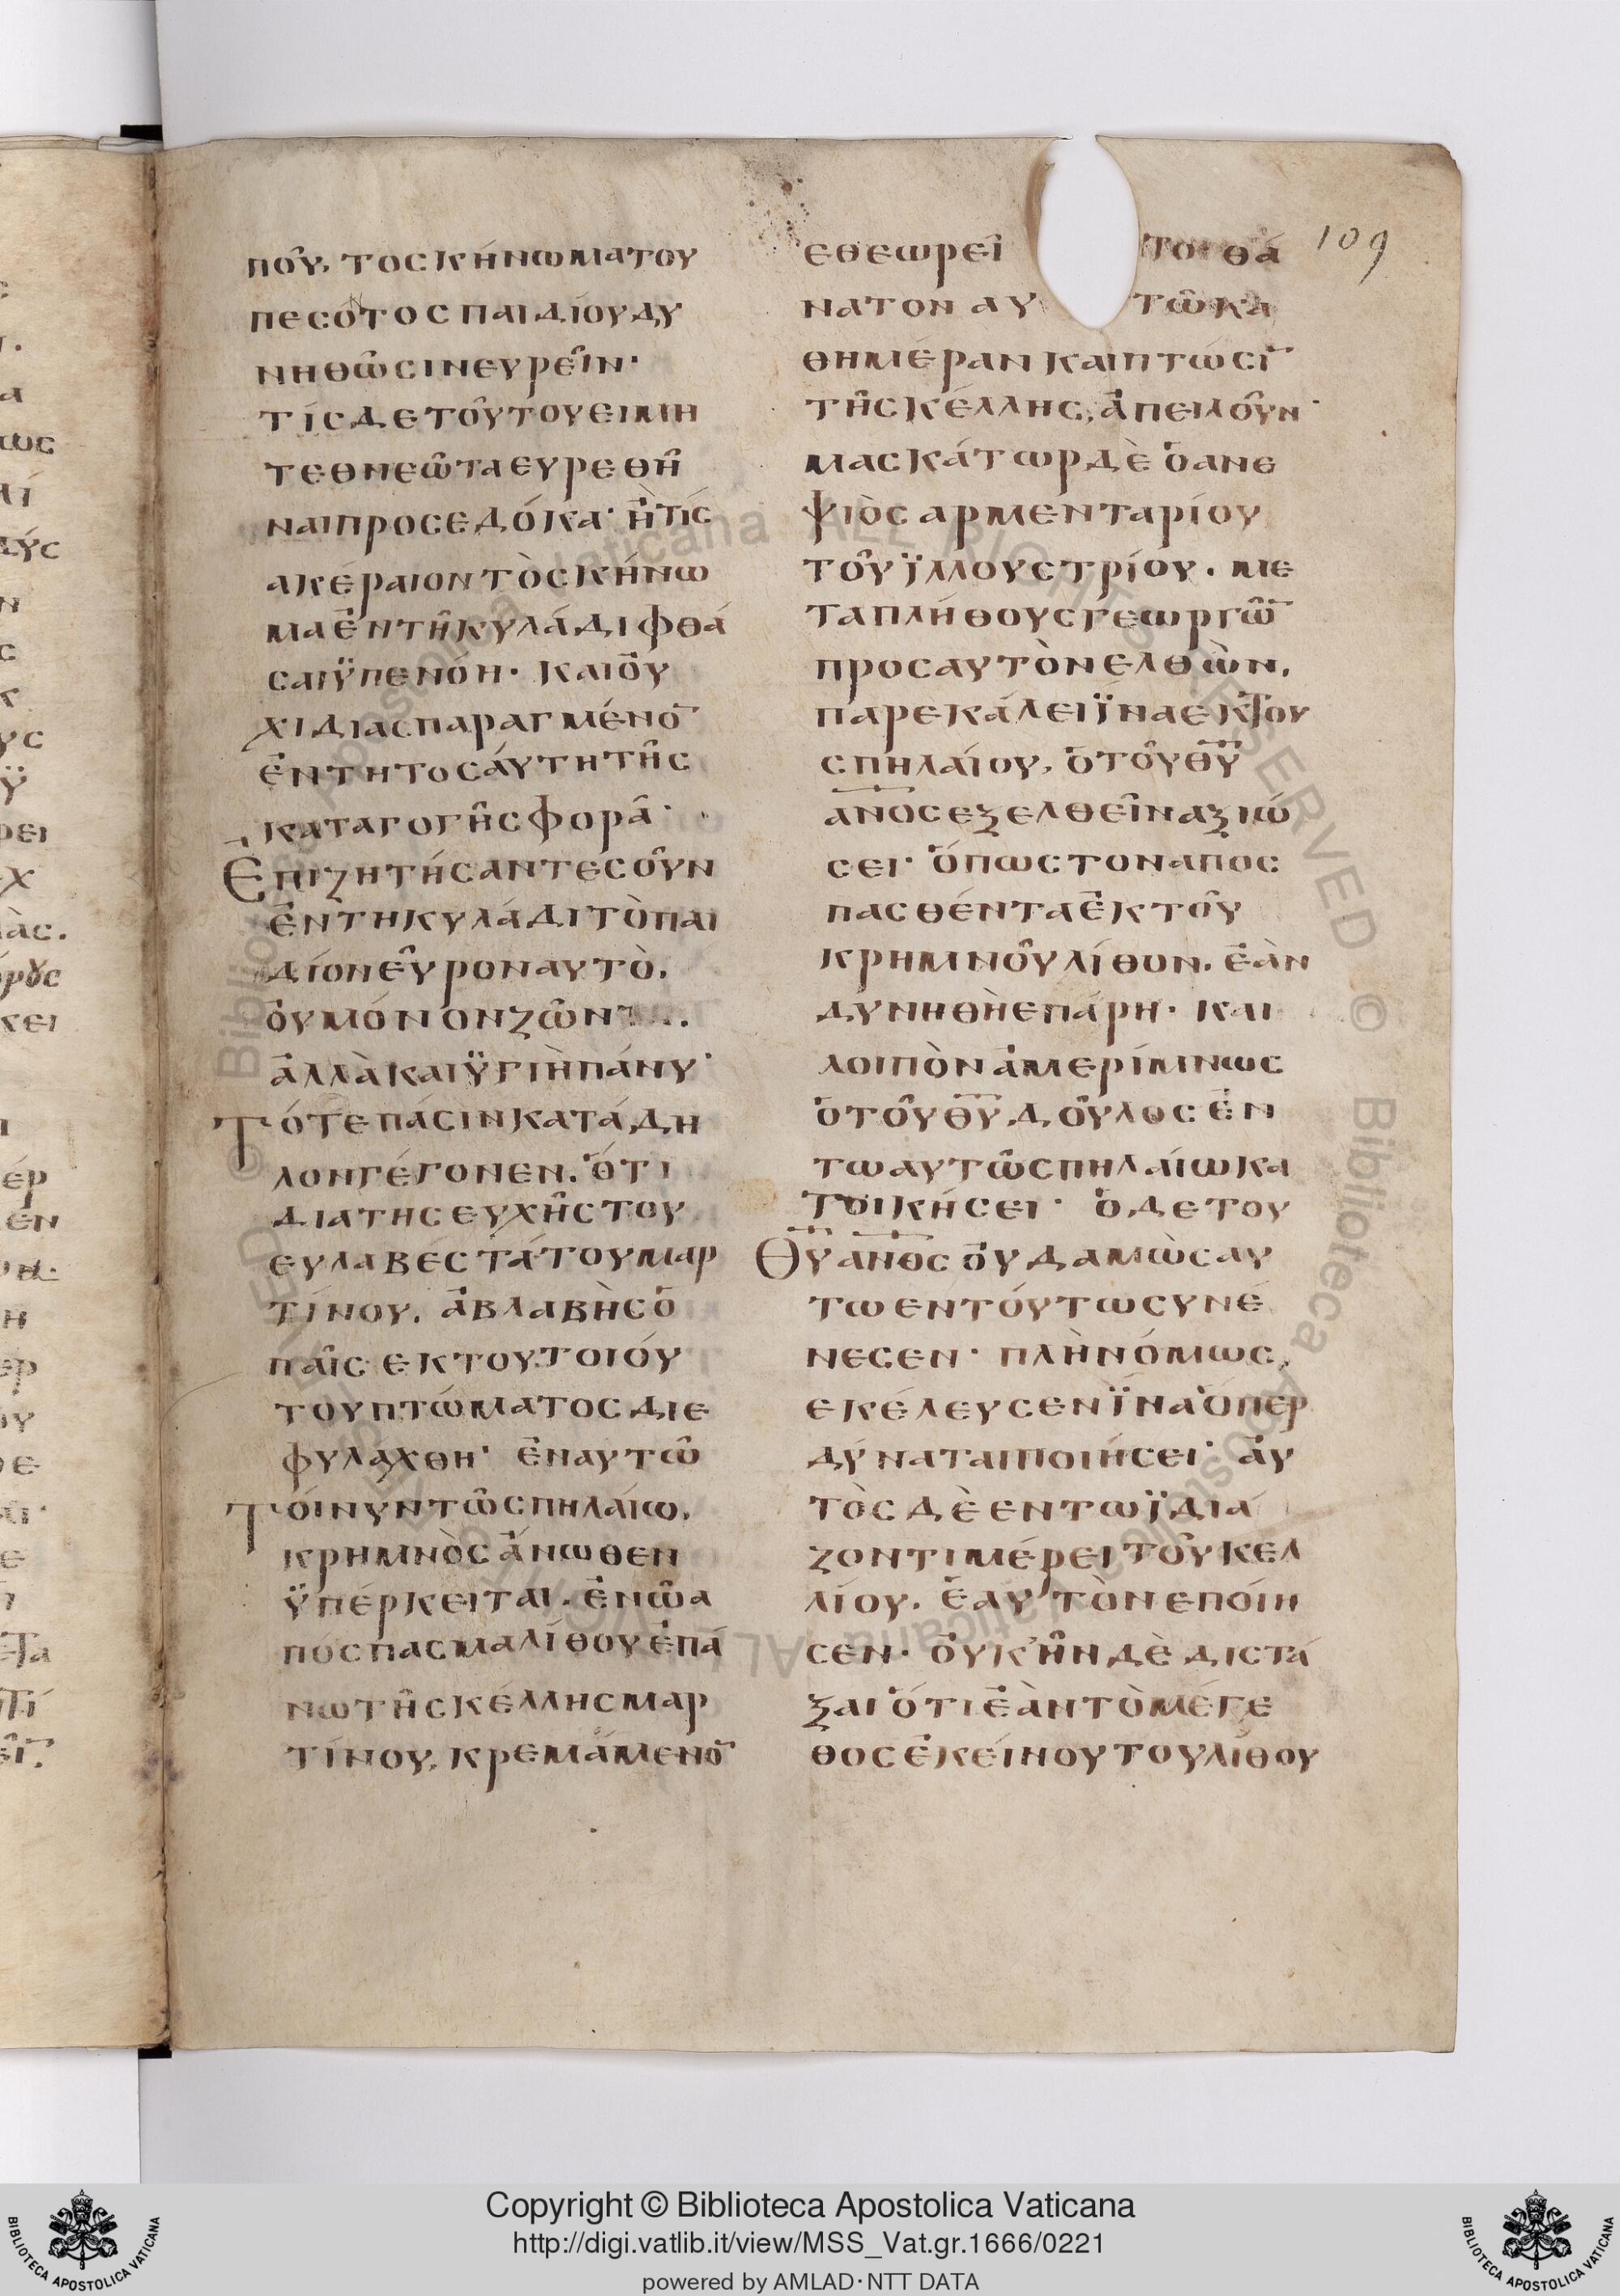 που, τὸ σκήνωμα τοῦ
πεσό̣ντος παιδίου δυ
νηθῶσιν ευρεῖν·
τίς δε τοῦτου ει μὴ
τεθνεῶτα ευρεθῆ
ναι προσεδόκα· ἢ τίς
ακέραιον τὸ σκήνω
μα ἐν τῆ κυλάδι φθά
σαι ϋπενόη· και οὐ
χι διασπαραγμένο̅
ἐν τη τοσάυτη τῆς
καταγογῆς φορᾶ·
Ἐπιζητήσαντες οῦν
ἐν τη κυλάδι τὸ παι
δίον εὗρον αυτὸ.
ὀυ μόνον ζῶν
ἀλλὰ και ϋγιὴ πάνυ·
Τότε πάσιν κατάδη
λον γέγονεν. ὅτι
δια της ευχῆς του
ευλαβεστάτου μαρ
τίνου. ἀβλαβὴς ὁ
παῖς εκ του τοιόυ
του πτώματος διε
φυλαχθη· ἐν αυτῶ
Τόινυν τῶ σπηλάιω.
κρημνὸς ἄνωθεν
ϋπέρκειται. ἐν ῶ α
πόσπασμα λίθου ἐπά
νω τῆς κέλλης μαρ
τίνου, κρεμάμενο̅
εθεωρεῖ το θά
νατον αυ τῶ κα
θημέραν και πτώσι̅
τῆς κέλλης, ἀπειλοῦν·
μασκάτωρ δὲ ὁ ανε
ψιὸς αρμενταρίου
τοῦ ϊλλουστρίου. με
τα πλήθους γεωργῶ̅
προς αυτὸν ελθὼν,
παρεκάλει ϊνα εκ του
σπηλαίου, ὁ τοῦ θ̅υ̅
α̅ν̅ο̅ς εξελθεῖν αξιώ
σει· ὅπως τον αποσ
πασθέντα ἐκ τοῦ
κρημνοῦ λίθον. ἐὰν
δυνηθὴ επάρη· και
λοιπὸν ἀμερίμνως
ὁ τοῦ θ̅υ̅ δοῦλος ἐν
τω αυτῶ σπηλαίω κα
τοικήσει· ὁ δε του
Θ̅υ̅ α̅ν̅ο̅ς οὐδαμὼς αυ
τω εν τόυτω συνέ
νεσεν· πλὴν όμως,
εκέλευσεν ϊνα ὅπερ
δύναται ποιήσει· ἀυ
τὸς δὲ εν τω ϊδιά
ζοντι μέρει τοῦ κελ
λίου. ἑαυτὸν εποίη
σεν· οὐκ ῆν δὲ διστά
ξαι ὅτι ἐὰν τὸ μέγε
θος ἐκείνου του λίθου
109
Copyright © Biblioteca Apostolica Vaticana
http://digi.vatlib.it/view/MSS_Vat.gr.1666/0221
powered by AMLAD·NTT DATA
BIBLIOTECA APOSTOLICA VATICANA
BIBLIOTECA APOSTOLICA VATICANA